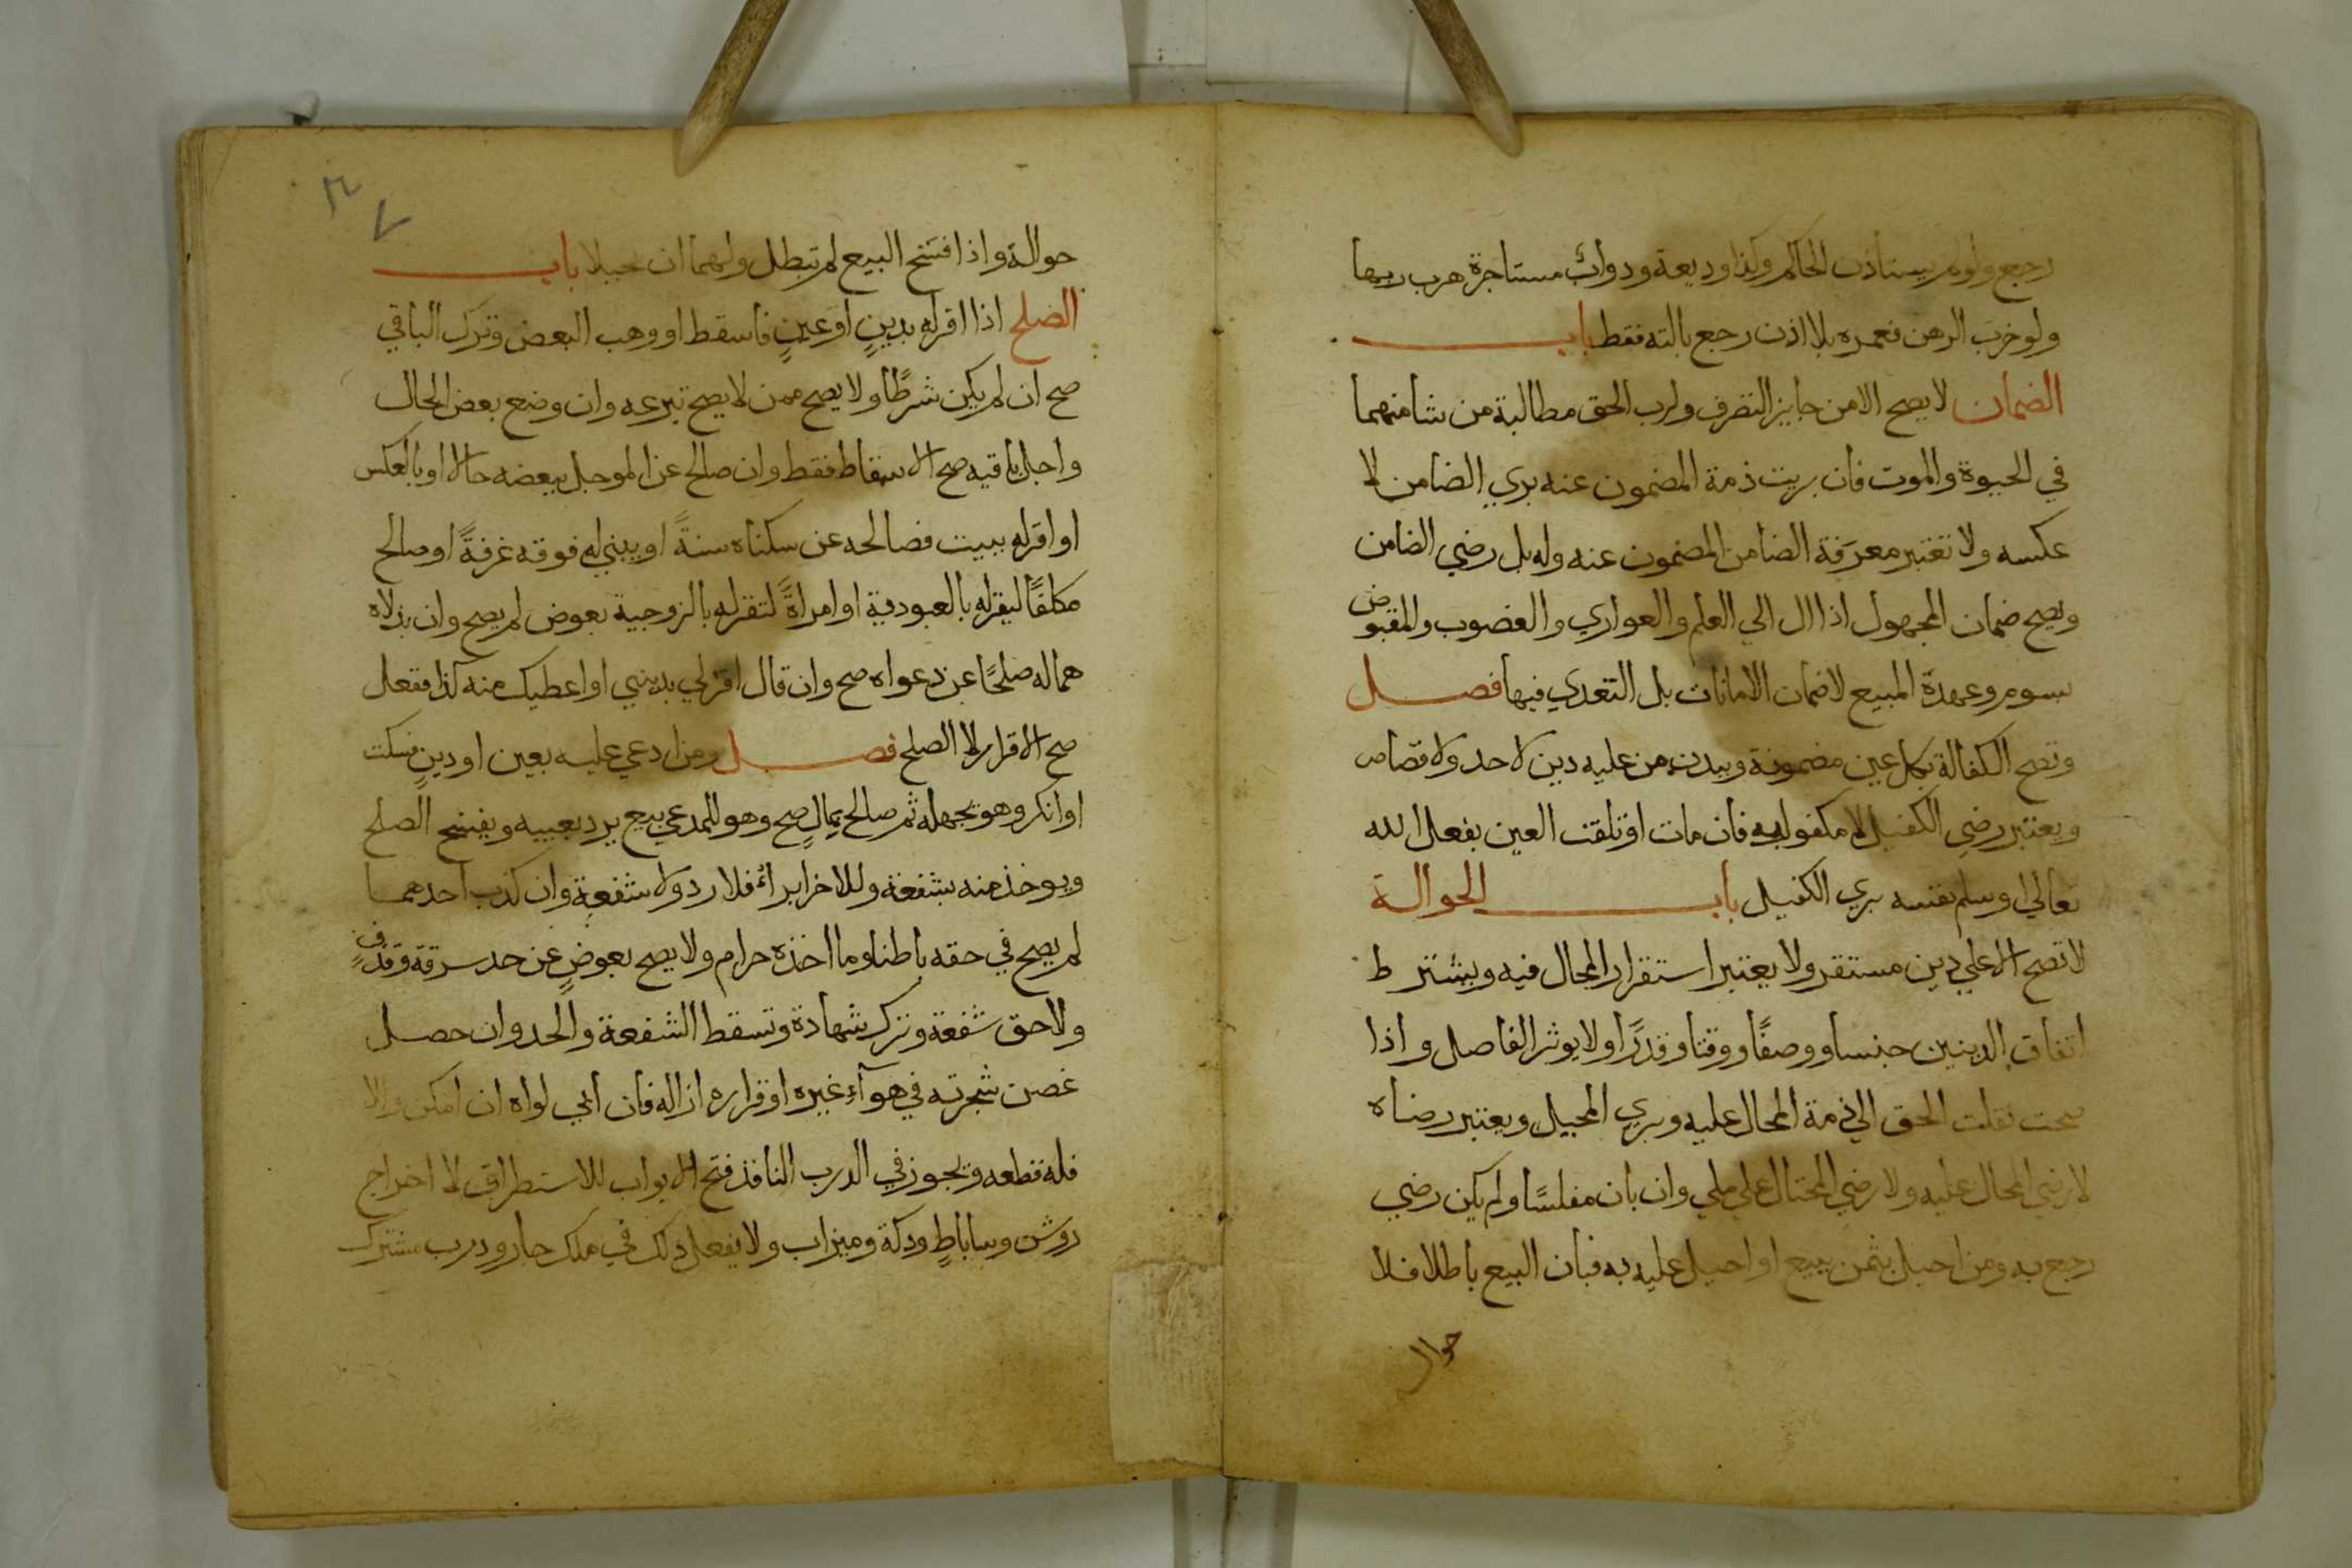 رجع ولو لم يستاذن الحاكم وكذا وديعة ودواب مستاجرة هرب ربها
ولو خرب الرهن فعمره بلا اذن رجع بالته فقط باب
الضمان لا يصح الا من جايز التصرف ولرب الحق مطالبة من شا منهما
في الحيوة والموت فان بريت ذمة المضمون عنه بري الضامن لا
عكسه ولا تعتبر معرفة الضامن المضمون عنه وله بل رضي الضامن
ويصح ضمان المجهول اذا ال الي العلم والعواري والغصوب والمقبوض
بسوم وعهدة المبيع لا ضمان الامانات بل التعدي فيها فصل
وتصح الكفالة بكل عين مضمونة وببدن من عليه دين لا حد ولا قصاص
ويعتبر رضي الكفيل لا مكفول به فان مات او تلفت العين بفعل الله
تعالي او سلم نفسه بري الكفيل باب الحوالة
لا تصح الا علي دين مستقر ولا يعتبر استقرار المحال فيه ويشترط
اتفاق الدينين جنسا ووصفًا ووقتا وقدرًا ولا يوثر الفاصل واذا
صحت نقلت الحق الي ذمة المحال عليه وبري المحيل ويعتبر رضاه
لا رضي المحال عليه ولا رضي المحتال علي ملي وان بان مفلسًا ولم يكن رضي
رجع به ومن احيل بثمن مبيع او احيل عليه به فبان البيع باطلا فلا
حوالة
٣٧
حوالة واذا افسخ البيع لم تبطل ولهما ان يحيلا باب
الصلح اذا اقر له بدينٍ او عينٍ فاسقط او وهب البعض وترك الباقي
صح ان لم يكن شرطًا ولا يصح ممن لا يصح تبرعه وان وضع بعض الحال
واجل باقيه صح الاسقاط فقط وان صالح عن الموجل ببعضه حالا او بالعكس
او اقر له ببيت فصالحه عن سكناه سنةً او يبني له فوقه غرفةً او صالح
مكلفًا ليقر له بالعبودية او امراةً لتقر له بالزوجية بعوض لم يصح وان بذلاه
هما له صلحًا عن دعواه صح وان قال اقر لي بديني او اعطيك منه كذا ففعل
صح الاقرار لا الصلح فصل ومن ادعي عليه بعين او دينٍ فسكت
او انكر وهو يجهله ثم صالح بمالٍ صح وهو للمدعي بيع يرد بعيبه ويفسخ الصلح
ويوخذ منه بشفعة وللاخر ابراءٌ فلا رد ولا شفعة وان كذب احدهما
لم يصح في حقه باطنا وما اخذه حرام ولا يصح بعوضٍ عن حد سرقة وقذفٍ
ولا حق شفعة وترك شهادة وتسقط الشفعة والحد وان حصل
غصن شجرته في هوآءِ غيره او قراره ازاله فان ابي لواه ان امكن والا
فله قطعه ويجوز في الدرب النافذ فتح الابواب للاستطراق لا اخراج
روشن وساباطٍ ودكة وميزاب ولا يفعل ذلك في ملك جار ودرب مشترك